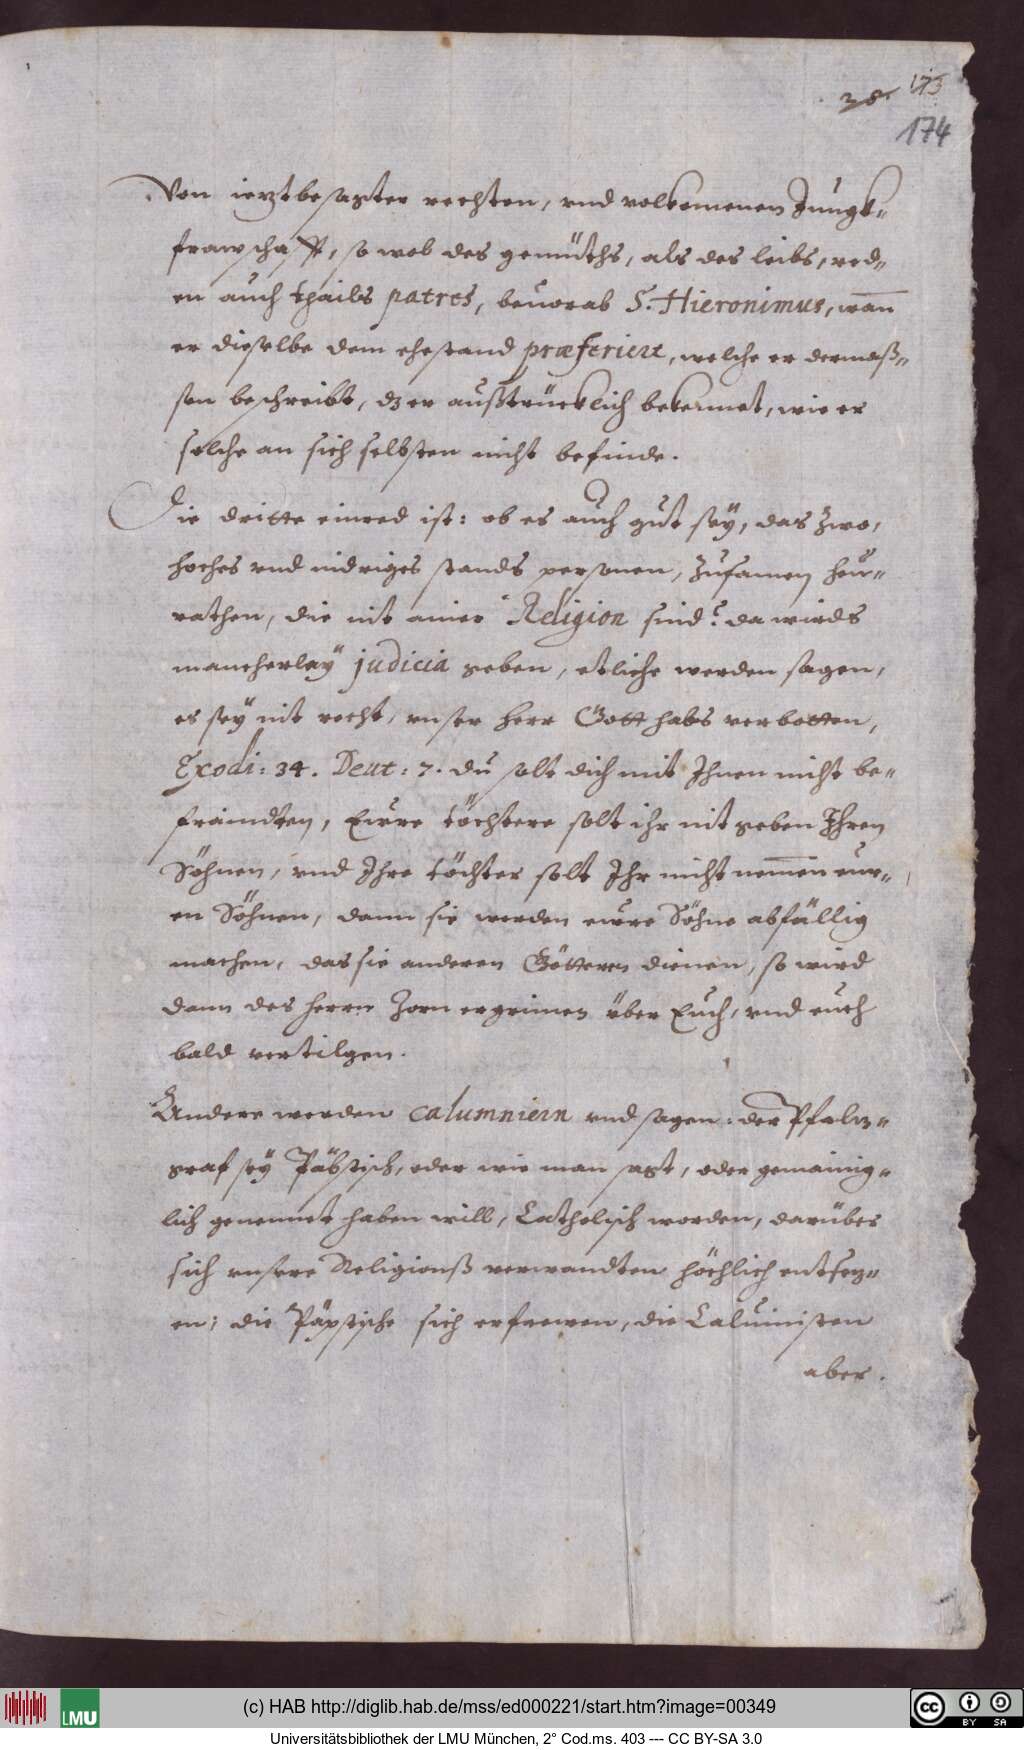 38. 173
174
Von ierztbesagter rechten, vnd volkomenen Jungk-
frawschafft, so wol des gemüths, als des leibs, red-
en auch thails patres, beuorab S. Hieronimus, wan̄
er dieselbe dem ehestand præferiert, welche er dermaß-
sen beschreibt, dz er außtrücklich bekennet, wie er
solche an sich selbsten nicht befinde.
Die dritte einred ist: ob es auch gut seÿ, das zwo,
hoches vnd nidriges stands personen, zusamen heu-
rathen, die nit ainer Religion sind? da wirds
mancherlaÿ judicia geben, etliche werden sagen,
es seÿ nit recht, vnser herr Gott habs verbotten,
Exodi: 34. Deut: 7. du solt dich mit Ihnen nicht be-
fraindten, Eure töchtere solt ihr nit geben Ihren
Söhnen, vnd Ihre töchter solt Ihr nicht nem̄en eur-
en Söhnen, dann sie werden eure Söhne abfällig
machen, das sie anderen Götteren dienen, so wird
dann des herrn Zorn ergrimen über Euch, vnd euch
bald vertilgen.
Andere werden calumniern vnd sagen: der Pfalz-
graf seÿ Päbstisch, oder wie man sagt, oder gemainig-
lich genennet haben will, Catholisch worden, darüber
sich vnsere Religionß verwandten höchlich entsez-
en; die Päpstische sich erfrewen, die Caluinisten
aber.
(c) HAB http://diglib.hab.de/mss/ed000221/start.htm?image=00349
LMU
CC BY SA
Universitätsbibliothek der LMU München, 2° Cod.ms. 403 --- CC BY-SA 3.0